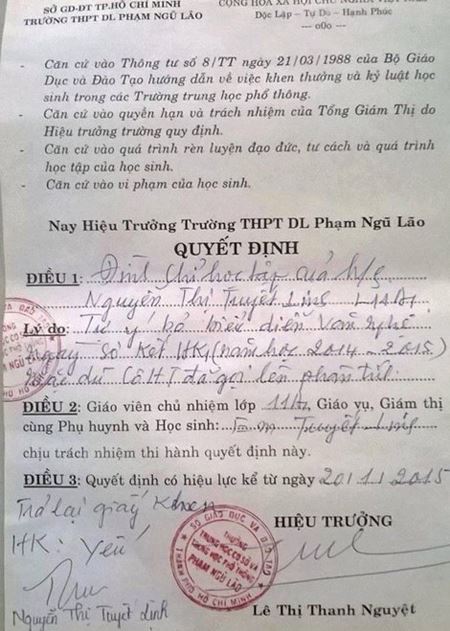 SỞ GD-ĐT TP.HỒ CHÍ MINH
TRƯỜNG THPT DL PHẠM NGŨ LÃO
CỘNG HÒA XÃ HỘI CHỦ NGHĨA VIỆT NAM
Độc Lập – Tự Do – Hạnh Phúc
--- o0o ---
- Căn cứ vào Thông tư số 8/TT ngày 21/03/1988 của Bộ Giáo
Dục và Đào Tạo hướng dẫn về việc khen thưởng và kỷ luật học
sinh trong các Trường trung học phổ thông.
- Căn cứ vào quyền hạn và trách nhiệm của Tổng Giám Thị do
Hiệu trưởng trường quy định.
- Căn cứ vào quá trình rèn luyện đạo đức, tư cách và quá trình
học tập của học sinh.
- Căn cứ vào vi phạm của học sinh.
Nay Hiệu Trưởng Trường THPT DL Phạm Ngũ Lão
QUYẾT ĐỊNH
ĐIỀU 1: Đình chỉ học tập của h/s
Nguyễn Thị Tuyết Linh
Lý do: Tự ý bỏ biểu diễn Văn nghệ
ngày Sơ kết HK1 (năm học 2014 - 2015)
mặc dù Cô HT đã gọi lên phân tích
ĐIỀU 2: Giáo viên chủ nhiệm lớp, Giáo vụ, Giám thị
cùng Phụ huynh và Học sinh: Em Tuyết Linh
chịu trách nhiệm thi hành quyết định này.
ĐIỀU 3: Quyết định có hiệu lực kể từ ngày 20/1/2015
Trả lại giấy khen
HK: Yếu
HIỆU TRƯỞNG
SỞ GIÁO DỤC VÀ ĐÀO TẠO
TRƯỜNG
TRUNG HỌC CƠ SỞ VÀ
TRUNG HỌC PHỔ THÔNG
PHẠM NGŨ LÃO
THÀNH PHỐ HỒ CHÍ MINH
Nguyễn Thị Tuyết
Lê Thị Thanh Nguyệt